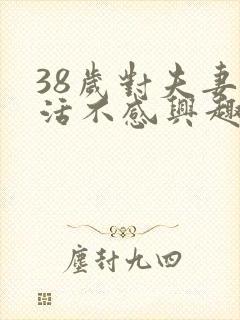 38歲對夫妻
活不感興趣
塵封九四